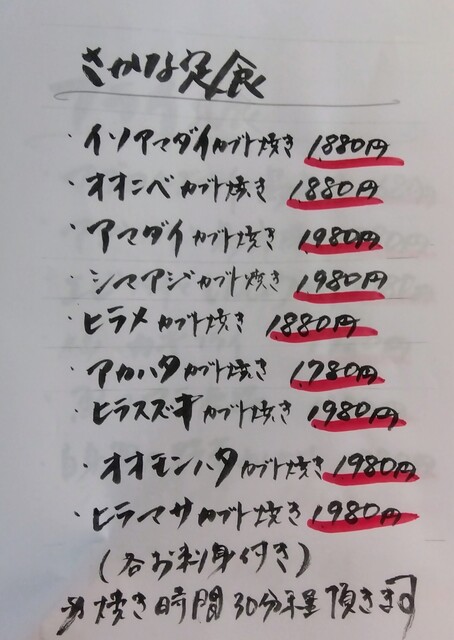 さかな定食
・イソアマダイカブト焼き 1,880円
・オオニベカブト焼き 1,880円
・アマダイカブト焼き 1,980円
・シマアジカブト焼き 1,980円
・ヒラメカブト焼き 1,880円
・アカハタカブト焼き 1,780円
・ヒラスズキカブト焼き 1,980円
・オオモンハタカブト焼き 1,980円
・ヒラマサカブト焼き 1,980円
(各お刺身付き)
焼き時間30分程頂きます